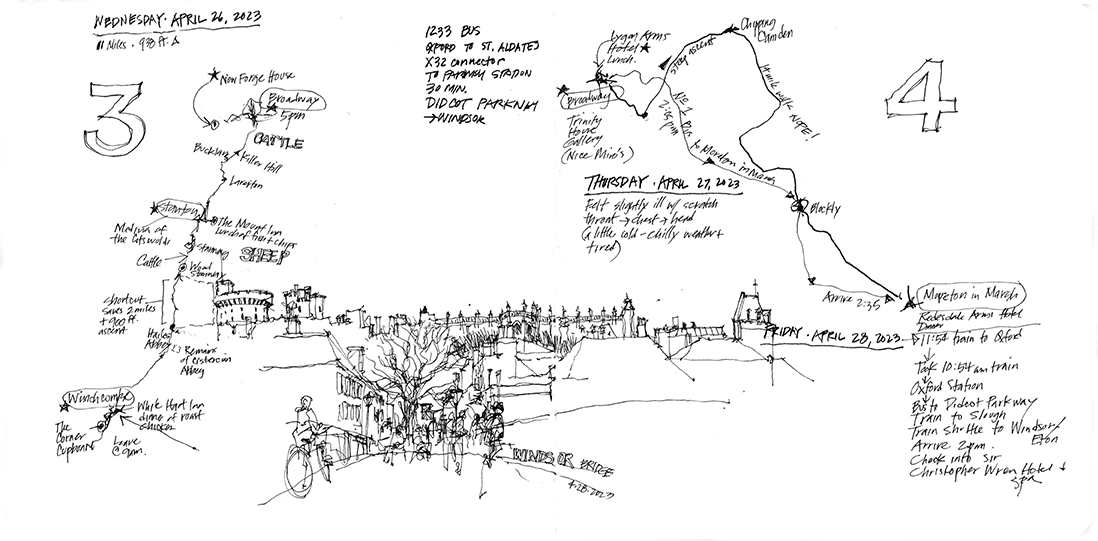 WEDNESDAY · APRIL 26, 2023
11 Miles · 938 ft. Δ
3
New Forge House
Broadway
5pm
CATTLE
Buckland
Killer Hill
Laverton
Stanton
The Mount Inn
Medusa of
the Cotswolds
Stanway
SHEEP
Cattle
Wood
Stanway
shortcut
saves 2 miles
+ 900 ft.
ascent
Hailes
Abbey
Remains
of Cistercian
Abbey
Winchcombe
White Hart Inn
dinner of roast
chicken
The
Corner
Cupboard
Leave
@ 9am.
1233 BUS
OXFORD TO ST. ALDATES
X32 connector
TO PARKWAY STATION
30 MIN.
DIDCOT PARKWAY
→ WINDSOR
Lygon Arms
Hotel
Lunch.
Broadway
Trinity
House
Gallery
(Nice Mini's)
steep ascent
Chipping
Camden
4 mile walk NOPE!
No 1 Bus to Moreton in Marsh
2:05pm
4
THURSDAY · APRIL 27, 2023
Felt slightly ill w/ scratch
throat → chest → head
(a little cold - chilly weather +
tired)
Blockly
Arrive 2:35
Moreton in Marsh
Redesdale Arms Hotel
Dinner
FRIDAY · APRIL 28, 2023
11:54 train to Oxford
Took 10:54 am train
Oxford Station
Bus to Didcot Parkway
Train to Slough
Train Shuttle to Windsor/
Eton
Arrive 2pm.
Check into Sir
Christopher Wren Hotel
3pm
WINDSOR BRIDGE
4.28.2023